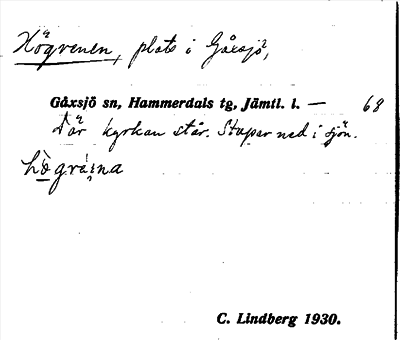 Högrenen, plats i Gåxsjö,
Gåxsjö sn, Hammerdals tg, Jämtl. l. — 68
Där kyrkan står. Stupar ned i sjön.
C. Lindberg 1930.